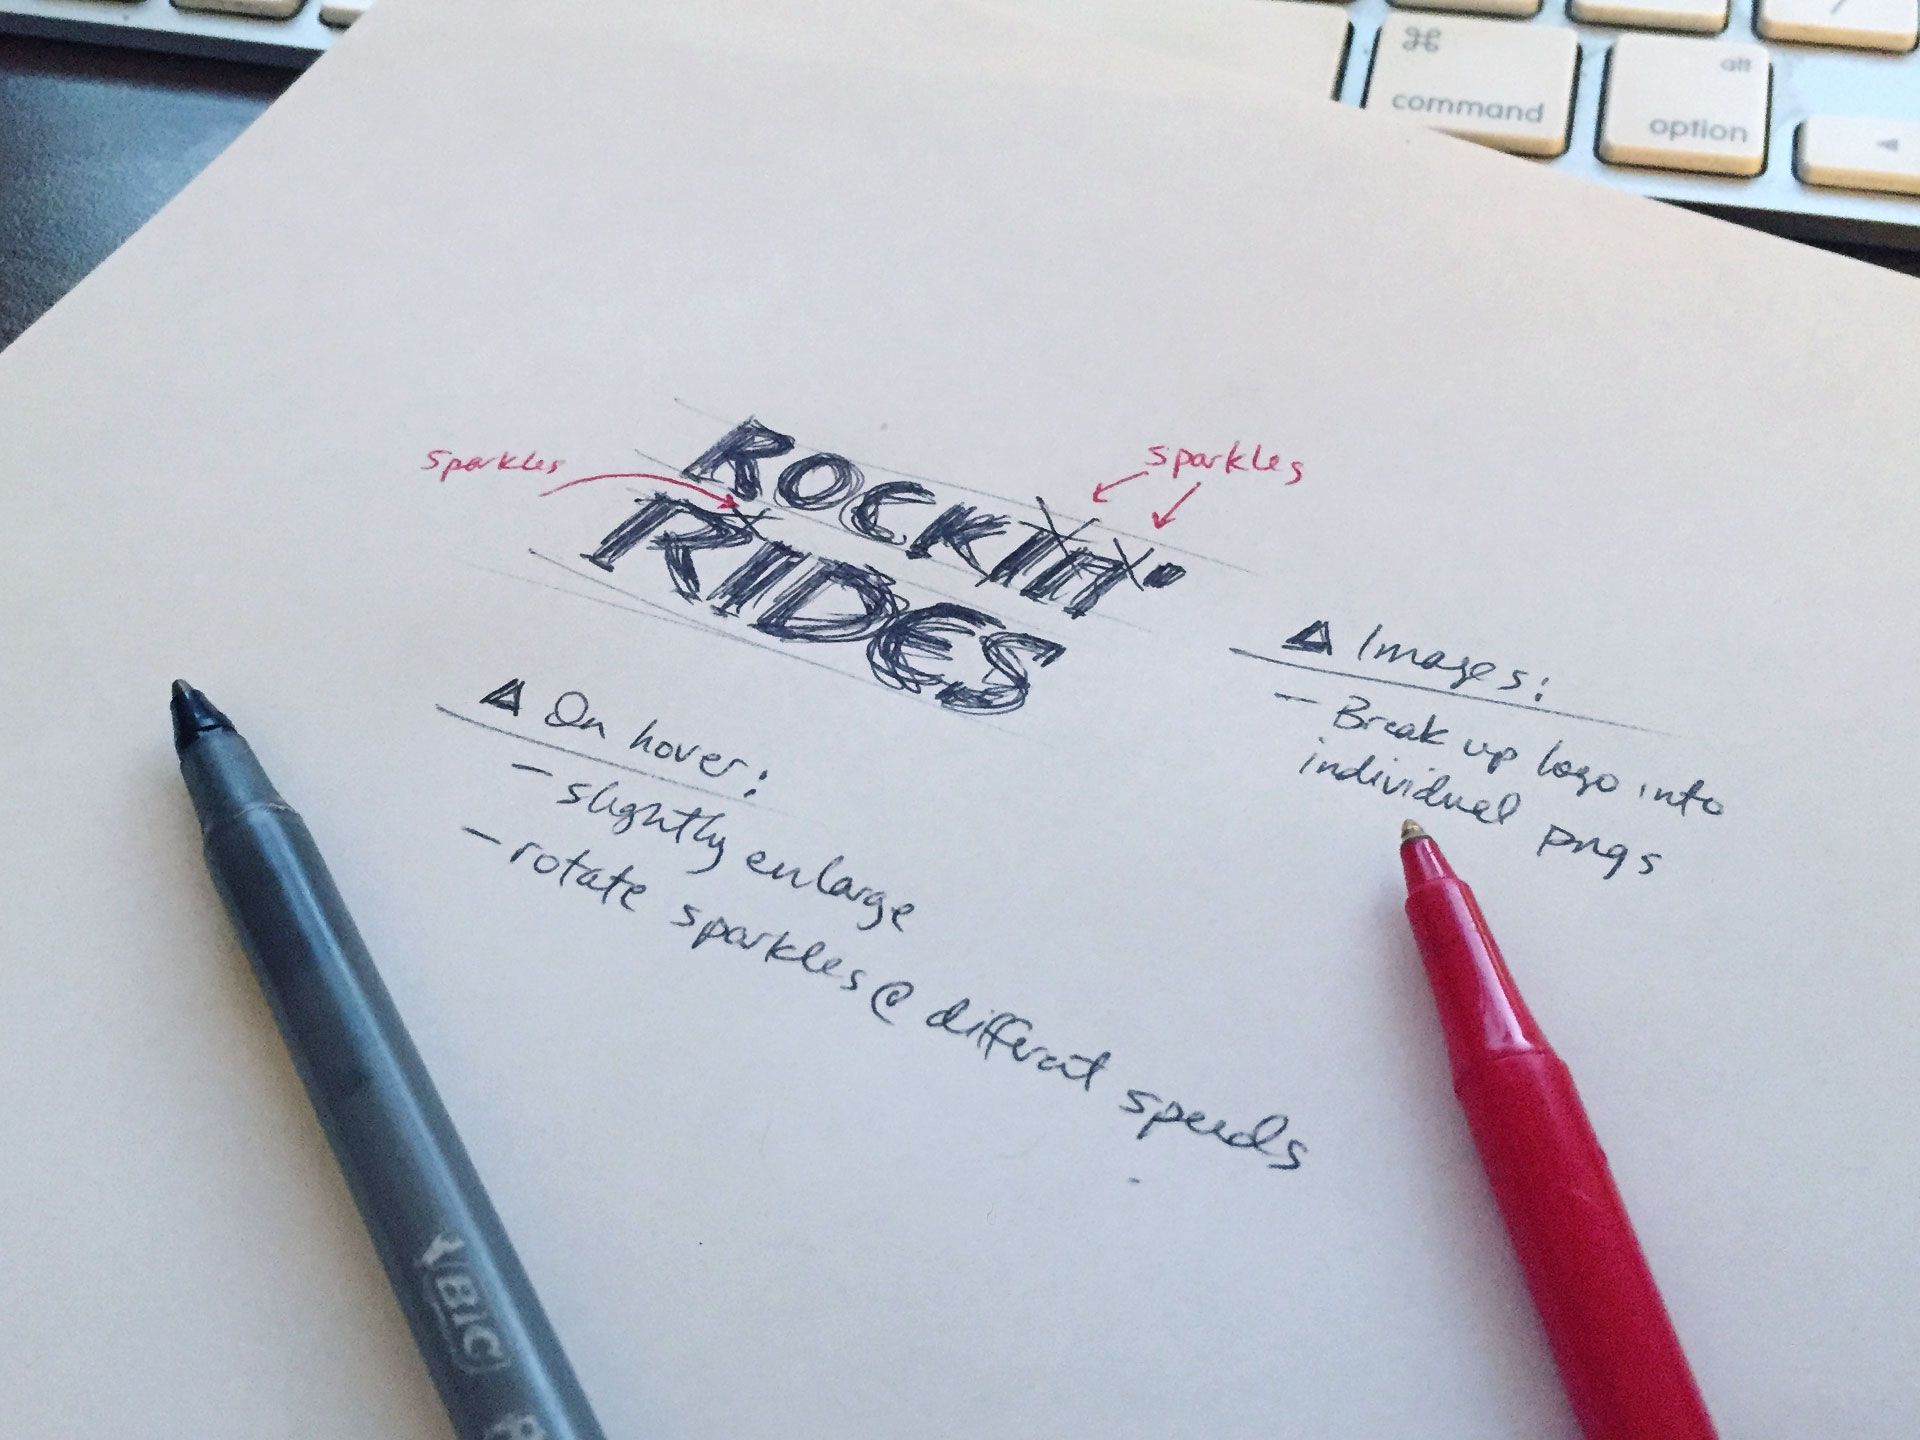 ⌘
command
alt
option
sparkles
sparkles
ROCKIN'
RIDES
Images:
- Break up logo into
individual pngs
On hover:
- slightly enlarge
- rotate sparkles @ different speeds
BIC